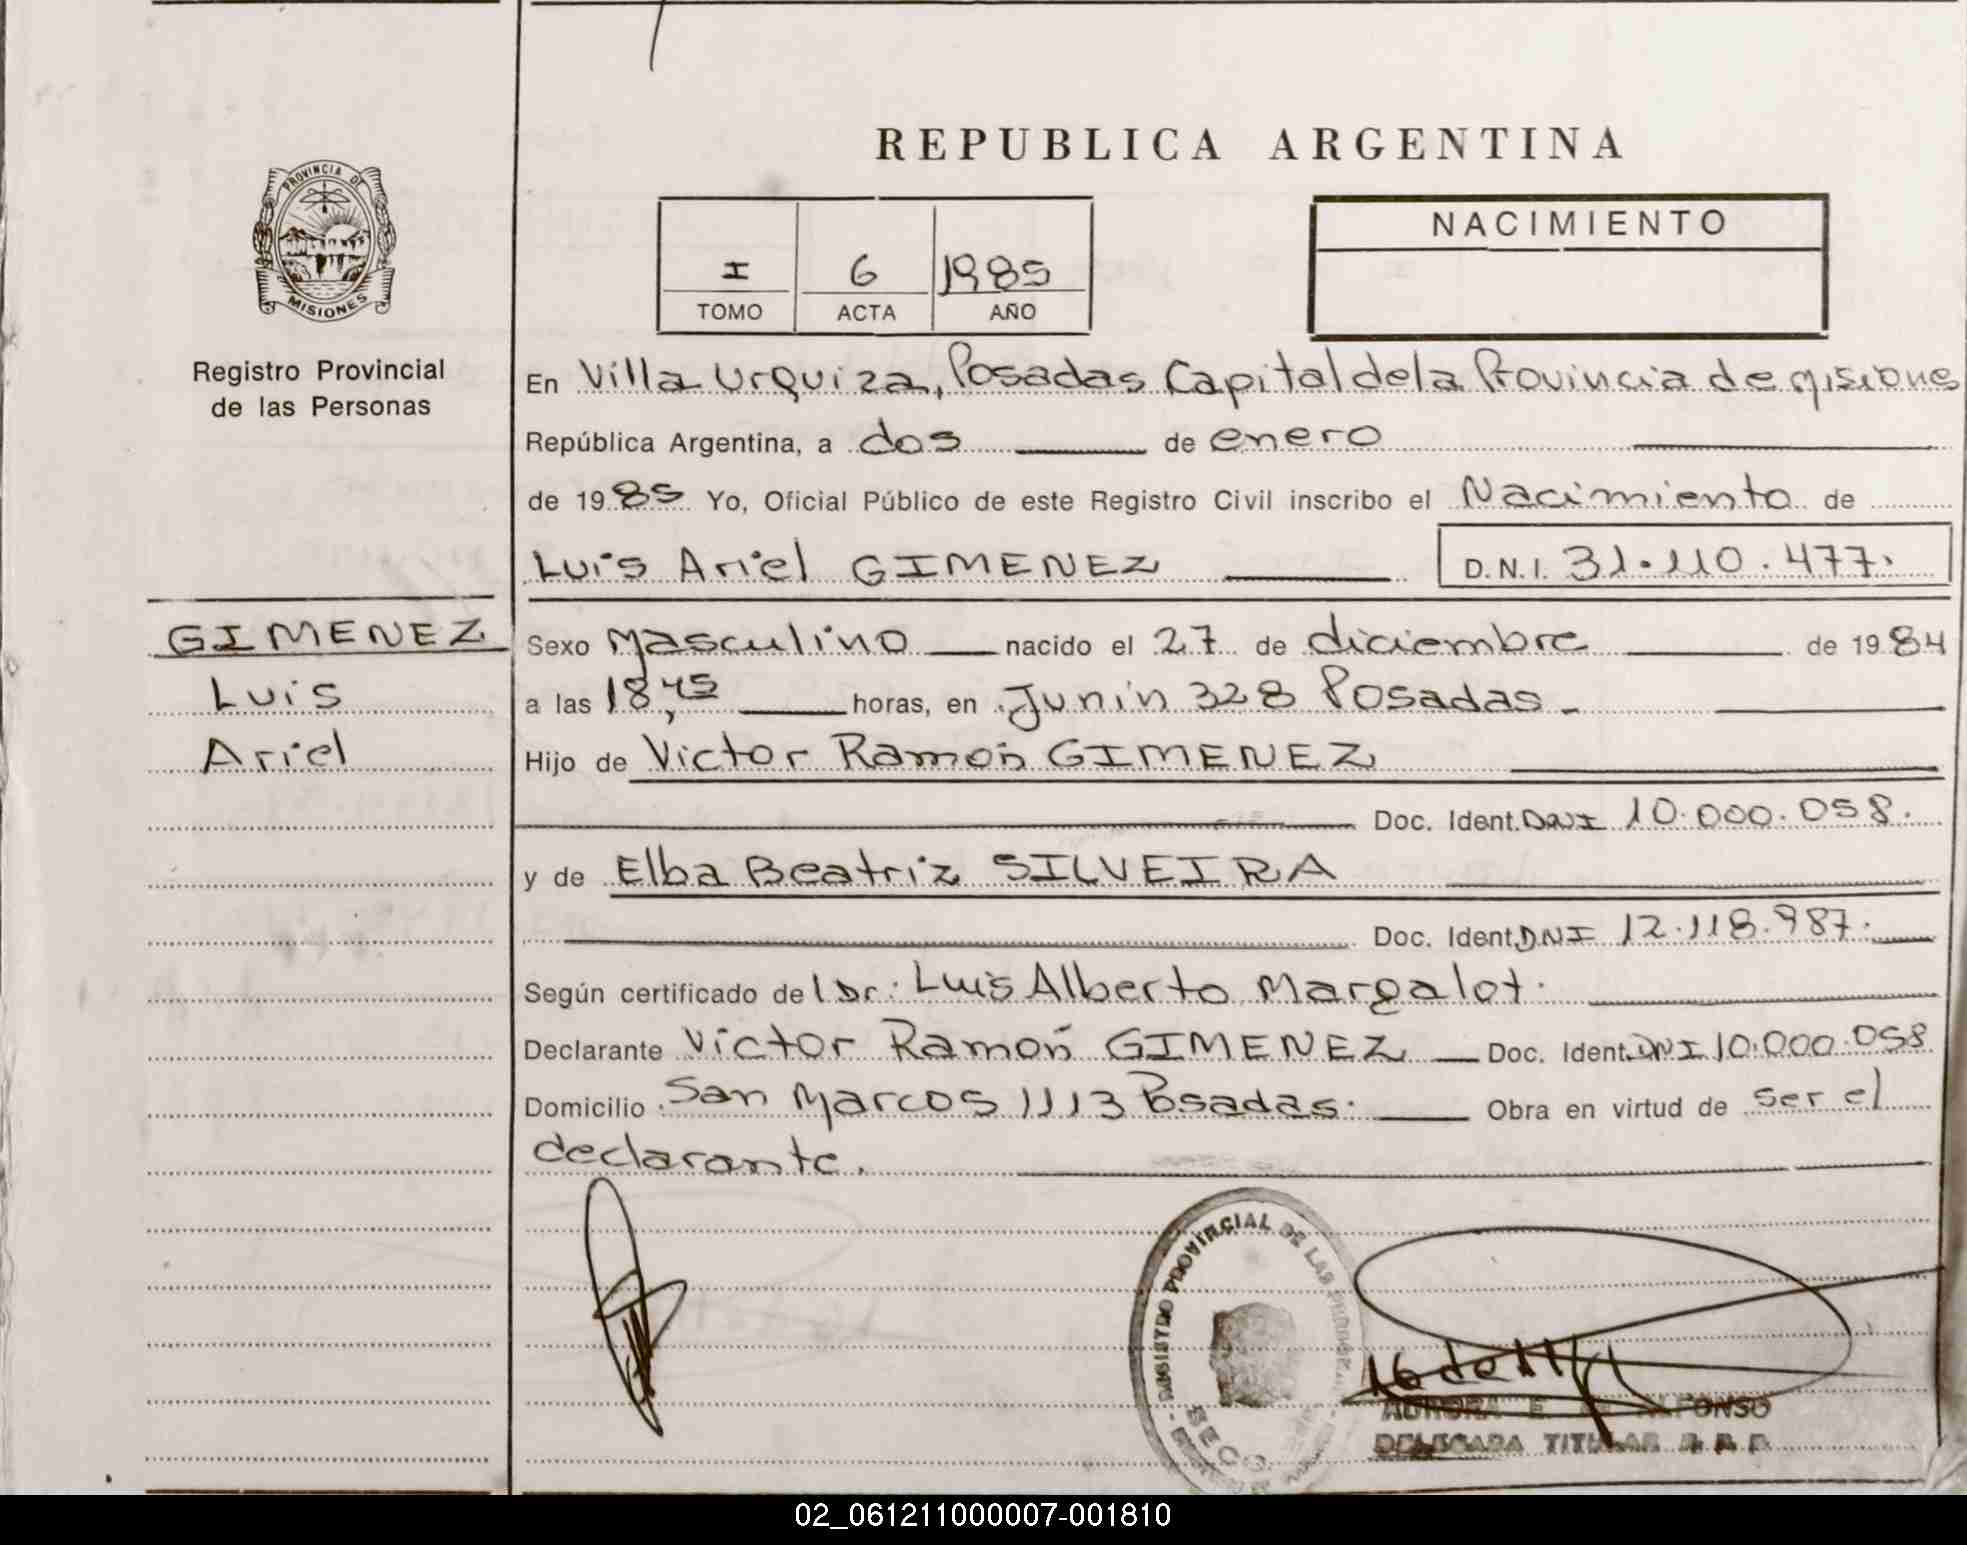 REPUBLICA ARGENTINA
PROVINCIA DE
MISIONES
Registro Provincial
de las Personas
I 6 1985
TOMO ACTA AÑO
NACIMIENTO
En Villa Urquiza, Posadas Capital de la Provincia de Misiones
República Argentina, a dos de enero
de 1985 Yo, Oficial Público de este Registro Civil inscribo el Nacimiento de
Luis Ariel GIMENEZ D.N.I. 31.110.477.
GIMENEZ
Luis
Ariel
Sexo Masculino nacido el 27 de diciembre de 1984
a las 18,45 horas, en Junín 328 Posadas.
Hijo de Victor Ramón GIMENEZ
Doc. Ident. DNI 10.000.058.
y de Elba Beatriz SILVEIRA
Doc. Ident. DNI 12.118.987.
Según certificado del Dr. Luis Alberto Margalot.
Declarante Victor Ramón GIMENEZ Doc. Ident. DNI 10.000.058
Domicilio San Marcos 1113 Posadas. Obra en virtud de ser el
declarante.
REGISTRO PROVINCIAL DE LAS PERSONAS
AURORA E. ALFONSO
DELEGADA TITULAR R. P. P.
02_061211000007-001810